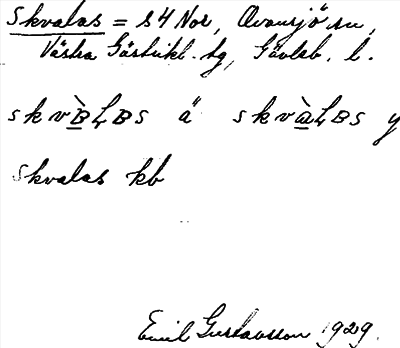 Skvalas = s 4 Nor, Ovansjö sn,
Västra Gästrikl. tg, Gävleb. l.
skvàLBs y
skvalas kb
Emil Gustavsson 1929.